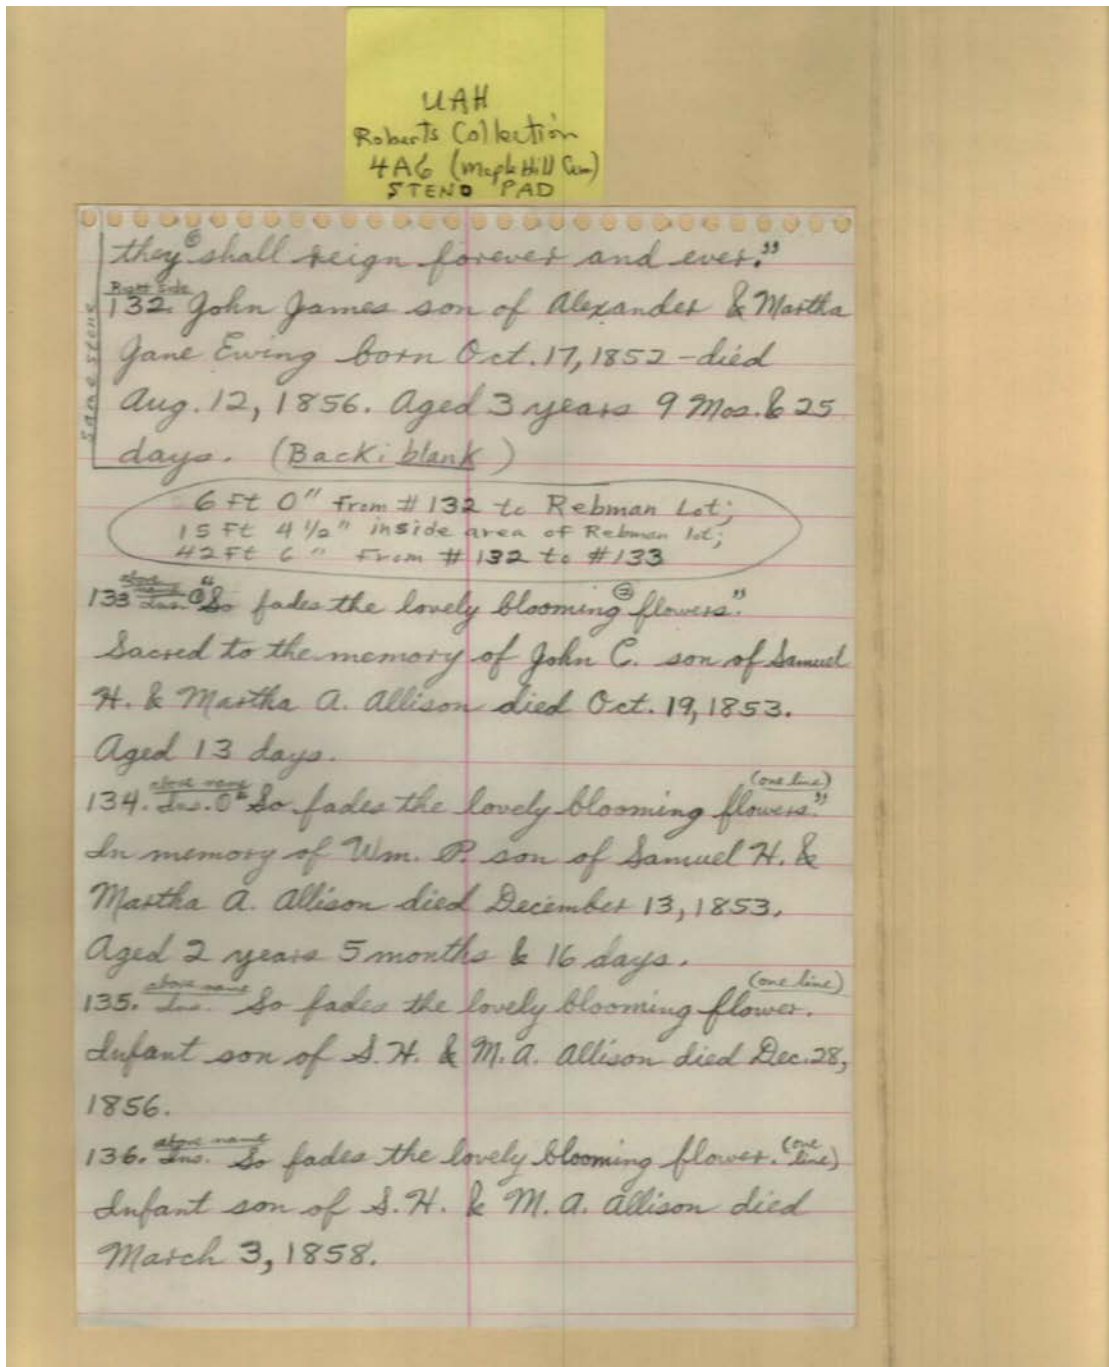 UAH
Roberts Collection
4A6 (Maple Hill Cem)
STENO PAD
they ⑥ shall reign forever and ever."
same stone
Right Side
132. John James son of Alexander & Martha
Jane Ewing born Oct. 17, 1852 - died
Aug. 12, 1856. Aged 3 years 9 Mos. & 25
days. (Back: blank)
6 Ft 0" From # 132 to Rebman Lot;
15 Ft 4 1/2" inside area of Rebman lot;
42 Ft 6" From # 132 to # 133
above name
133 Ins. ① "So fades the lovely blooming ② flowers".
Sacred to the memory of John C. son of Samuel
H. & Martha A. Allison died Oct. 19, 1853.
Aged 13 days.
above name (one line)
134. Ins. "So fades the lovely blooming flowers."
In memory of Wm. P. son of Samuel H. &
Martha A. Allison died December 13, 1853.
Aged 2 years 5 months & 16 days.
above name (one line)
135. Ins. So fades the lovely blooming flower.
Infant son of S. H. & M. A. Allison died Dec. 28,
1856.
above name
136. Ins. So fades the lovely blooming flower. (one line)
Infant son of S. H. & M. A. Allison died
March 3, 1858.